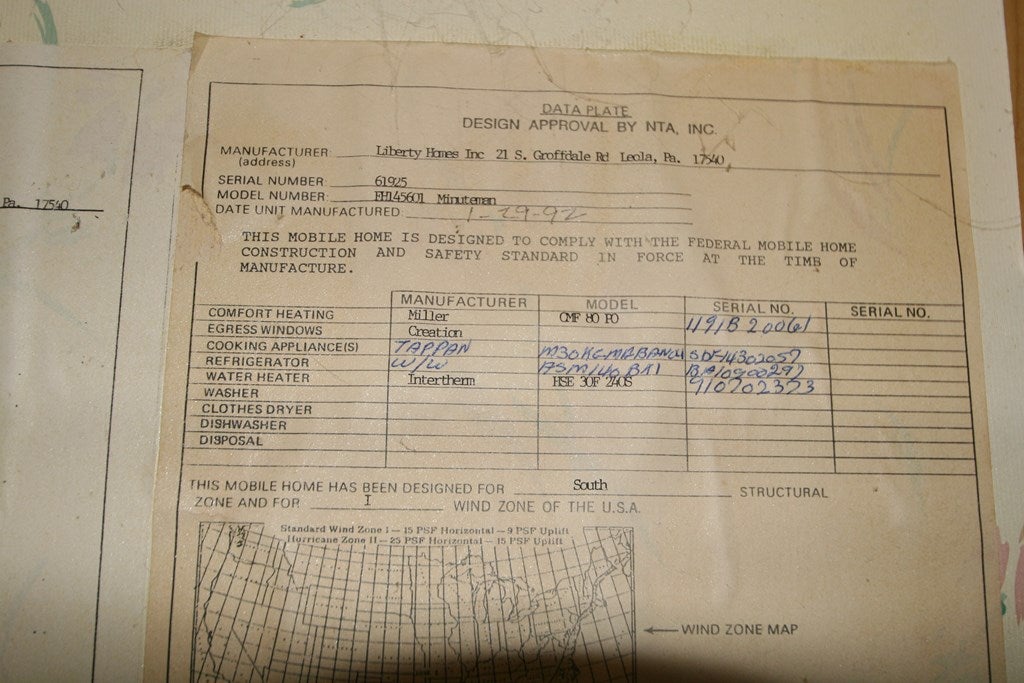 DATA PLATE
DESIGN APPROVAL BY NTA, INC.
MANUFACTURER Liberty Homes Inc 21 S. Groffdale Rd Leola, Pa. 17540
(address)
Pa. 17540
SERIAL NUMBER 61925
MODEL NUMBER: EH145601 Minuteman
DATE UNIT MANUFACTURED: 1-29-92
THIS MOBILE HOME IS DESIGNED TO COMPLY WITH THE FEDERAL MOBILE HOME
CONSTRUCTION AND SAFETY STANDARD IN FORCE AT THE TIMB OF
MANUFACTURE.
MANUFACTURER MODEL SERIAL NO. SERIAL NO.
COMFORT HEATING Miller CMF 80 PO 491B 20061
EGRESS WINDOWS Creation
COOKING APPLIANCE(S) TAPPAN
REFRIGERATOR W/W
WATER HEATER Intertherm HSE 30F 240S 910702373
WASHER
CLOTHES DRYER
DISHWASHER
DISPOSAL
THIS MOBILE HOME HAS BEEN DESIGNED FOR South STRUCTURAL
ZONE AND FOR I WIND ZONE OF THE U.S.A.
Standard Wind Zone I — 15 PSF Horizontal — 9 PSF Uplift
Hurricane Zone II — 25 PSF Horizontal — 15 PSF Uplift
WIND ZONE MAP